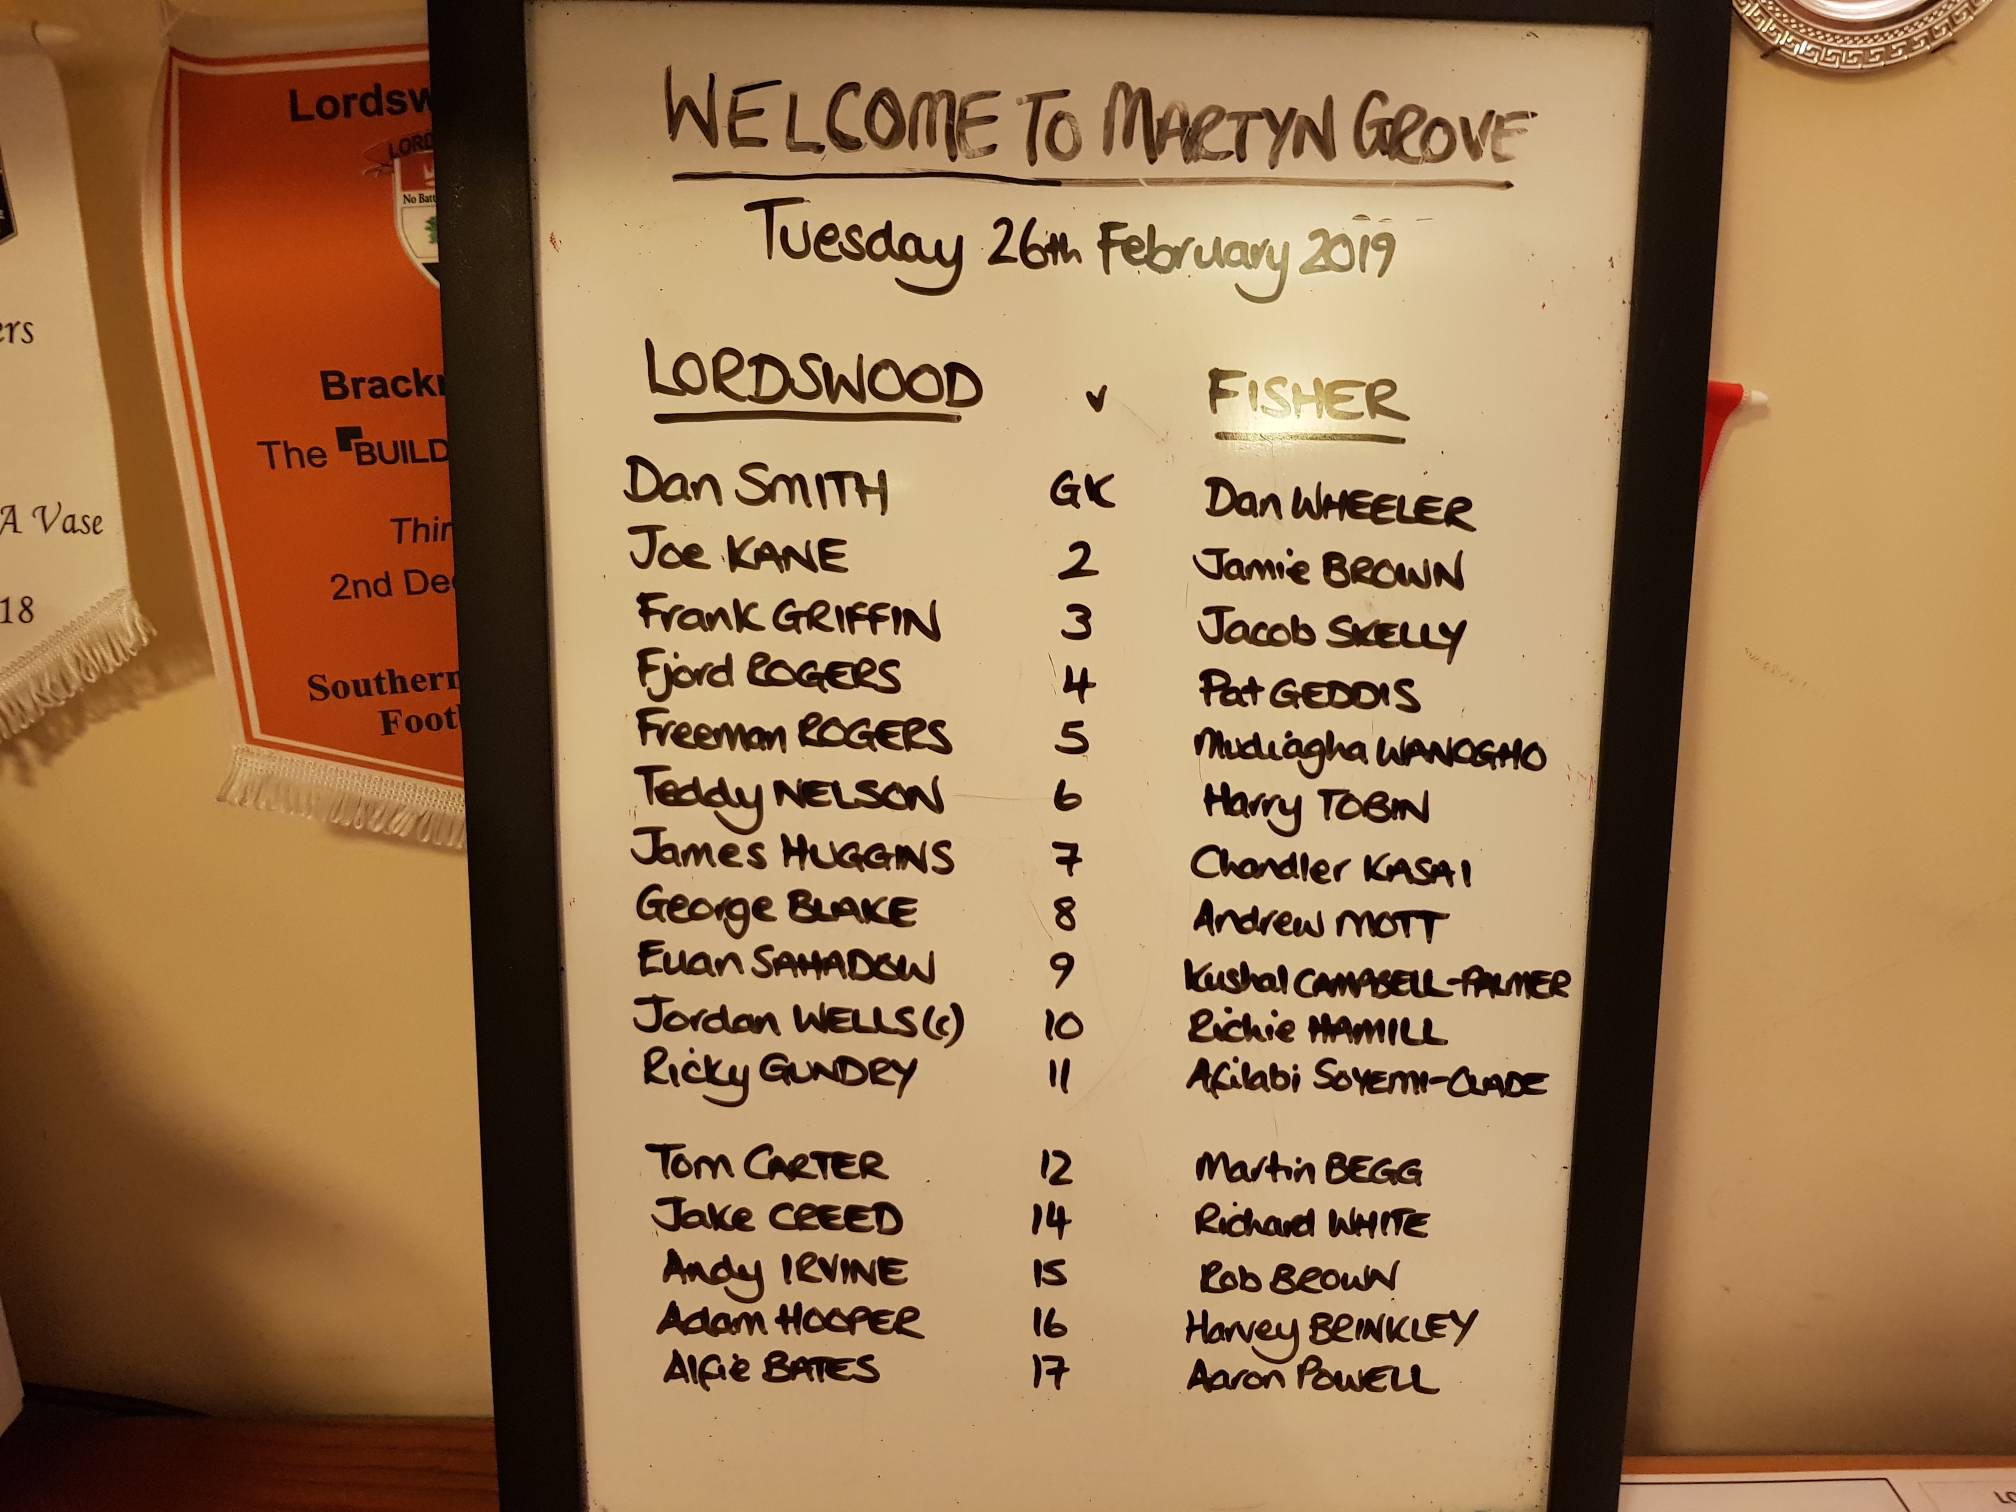 WELCOME TO MARTYN GROVE
Tuesday 26th February 2019
LORDSWOOD v FISHER
Dan SMITH GK Dan WHEELER
Joe KANE 2 Jamie BROWN
Frank GRIFFIN 3 Jacob SKELLY
Fjord ROGERS 4 Pat GEDDIS
Freeman ROGERS 5 Mudiagha WANOGHO
Teddy NELSON 6 Harry TOBIN
James HUGGINS 7 Chandler KASAI
George BLAKE 8 Andrew MOTT
Euan SAHADOW 9 Kushal CAMPBELL-PALMER
Jordan WELLS (c) 10 Richie HAMILL
Ricky GUNDRY 11 Afilabi SOYEMI-OLADE
Tom CARTER 12 Martin BEGG
Jake CREED 14 Richard WHITE
Andy IRVINE 15 Rob BROWN
Adam HOOPER 16 Harvey BRINKLEY
Alfie BATES 17 Aaron POWELL
Lordsw
LORD
No Batt
Brackn
The BUILD
Thir
2nd Dec
Southern
Foot
ers
A Vase
18